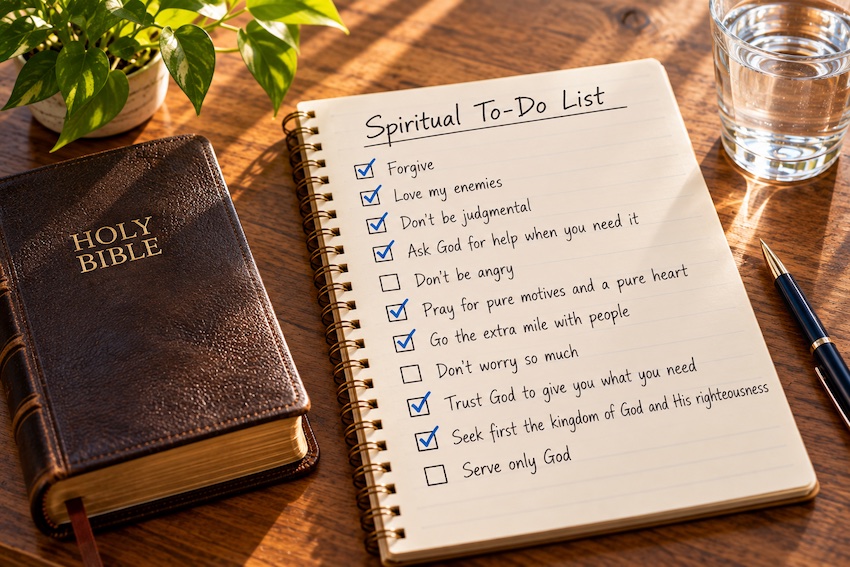 HOLY
BIBLE
Spiritual To-Do List
Forgive
Love my enemies
Don't be judgmental
Ask God for help when you need it
Don't be angry
Pray for pure motives and a pure heart
Go the extra mile with people
Don't worry so much
Trust God to give you what you need
Seek first the kingdom of God and His righteousness
Serve only God